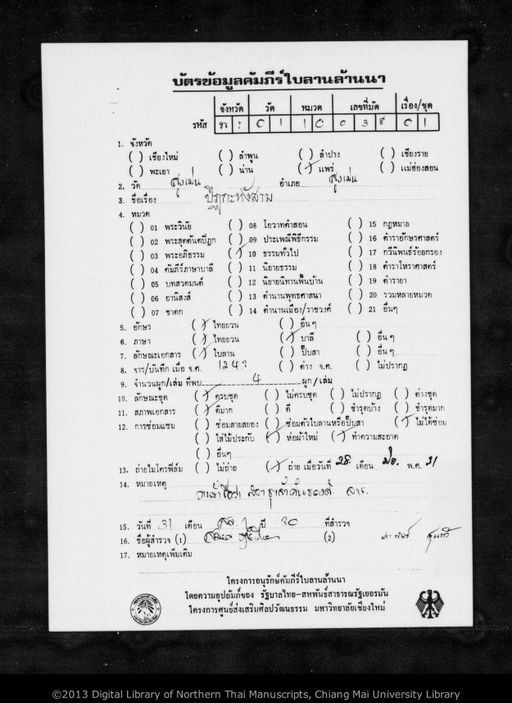 บัตรข้อมูลคัมภีร์ใบลานล้านนา
จังหวัด วัด หมวด เลขที่มัด เรื่อง/ชุด
รหัส 0 1 1 0 0 3 8 0 1
1. จังหวัด
( ) เชียงใหม่ ( ) ลำพูน ( ) ลำปาง ( ) เชียงราย
( ) พะเยา ( ) น่าน (/) แพร่ ( ) แม่ฮ่องสอน
2. วัด สูงเม่น อำเภอ สูงเม่น
3. ชื่อเรื่อง ปิฎกะทังสาม
4. หมวด
( ) 01 พระวินัย ( ) 08 โอวาทคำสอน ( ) 15 กฎหมาย
( ) 02 พระสุตตันตปิฎก ( ) 09 ประเพณีพิธีกรรม ( ) 16 ตำราอักษรศาสตร์
( ) 03 พระอภิธรรม (/) 10 ธรรมทั่วไป ( ) 17 กวีนิพนธ์ร้อยกรอง
( ) 04 คัมภีร์ภาษาบาลี ( ) 11 นิยายธรรม ( ) 18 ตำราโหราศาสตร์
( ) 05 บทสวดมนต์ ( ) 12 นิยายนิทานพื้นบ้าน ( ) 19 ตำรายา
( ) 06 อานิสงส์ ( ) 13 ตำนานพุทธศาสนา ( ) 20 รวมหลายหมวด
( ) 07 ชาดก ( ) 14 ตำนานเมือง/ราชวงศ์ ( ) 21 อื่นๆ
5. อักษร (/) ไทยยวน ( ) อื่นๆ
6. ภาษา (/) ไทยยวน (/) บาลี ( ) อื่นๆ
7. ลักษณะเอกสาร (/) ใบลาน ( ) ปั๊บสา ( ) อื่นๆ
8. จาร/บันทึก เมื่อ จ.ศ. 1242 ( ) ค่าง จ.ศ. ( ) ไม่ปรากฏ
9. จำนวนผูก/เล่ม ที่พบ 4 ผูก/เล่ม
10. ลักษณะชุด (/) ครบชุด ( ) ไม่ครบชุด ( ) ไม่ปรากฏ ( ) ค่างชุด
11. สภาพเอกสาร (/) ดีมาก ( ) ดี ( ) ชำรุดบ้าง ( ) ชำรุดมาก
12. การซ่อมแซม ( ) ซ่อมสายสยอง ( ) ซ่อมตัวใบลานหรือปั๊บสา (/) ไม่ได้ซ่อม
( ) ใส่ไม้ประกับ (/) ห่อผ้าใหม่ (/) ทำความสะอาด
( ) อื่นๆ
13. ถ่ายไมโครฟิล์ม ( ) ไม่ถ่าย (/) ถ่าย เมื่อวันที่ 28 เดือน พ.ศ. 31
14. หมายเหตุ
15. วันที่ 31 เดือน ปี 30 ที่สำรวจ
16. ชื่อผู้สำรวจ (1) (2)
17. หมายเหตุเพิ่มเติม
โครงการอนุรักษ์คัมภีร์ใบลานล้านนา
โดยความอุปถัมภ์ของ รัฐบาลไทย-สหพันธ์สาธารณรัฐเยอรมัน
โครงการศูนย์ส่งเสริมศิลปวัฒนธรรม มหาวิทยาลัยเชียงใหม่
©2013 Digital Library of Northern Thai Manuscripts, Chiang Mai University Library